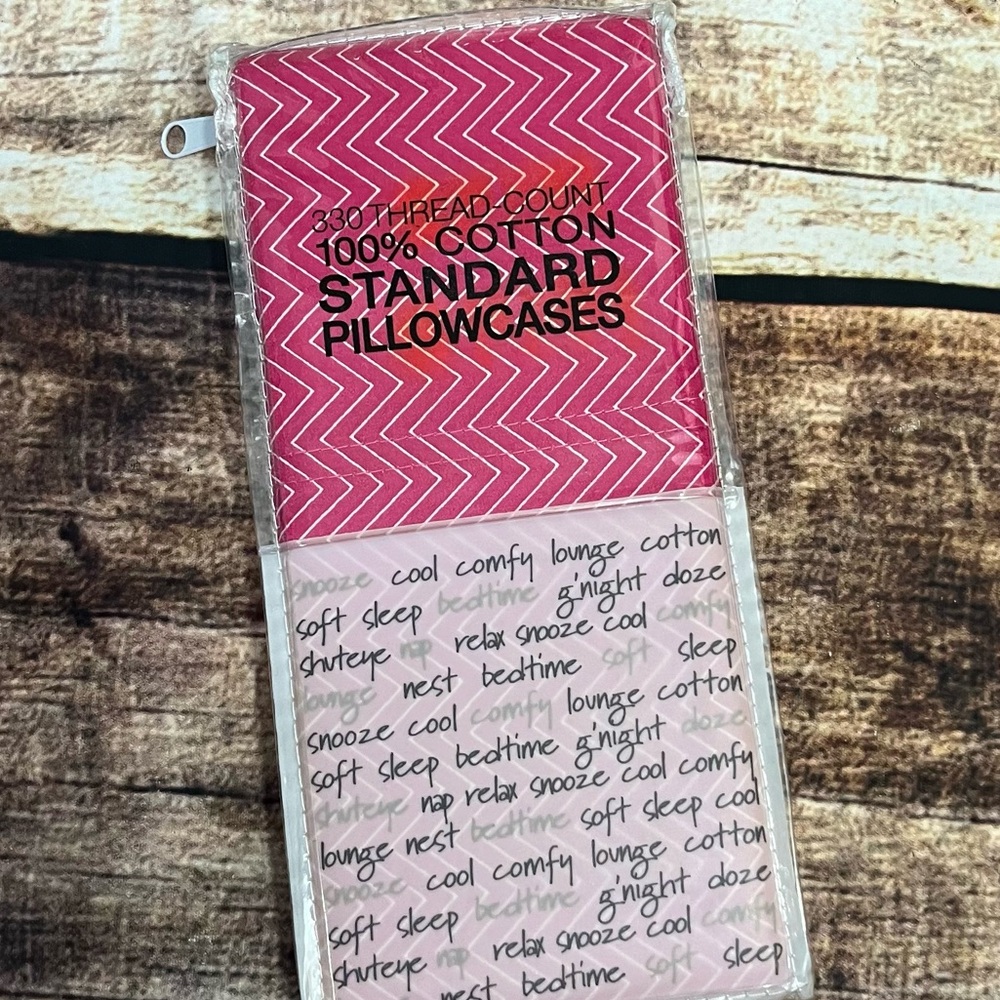 330 THREAD-COUNT
100% COTTON
STANDARD
PILLOWCASES
snooze cool comfy lounge cotton
soft sleep bedtime g'night doze
shuteye nap relax snooze cool comfy
lounge nest bedtime soft sleep
snooze cool comfy lounge cotton
soft sleep bedtime g'night doze
shuteye nap relax snooze cool comfy
lounge nest bedtime soft sleep cool
snooze cool comfy lounge cotton
soft sleep bedtime g'night doze
shuteye nap relax snooze cool comfy
nest bedtime soft sleep